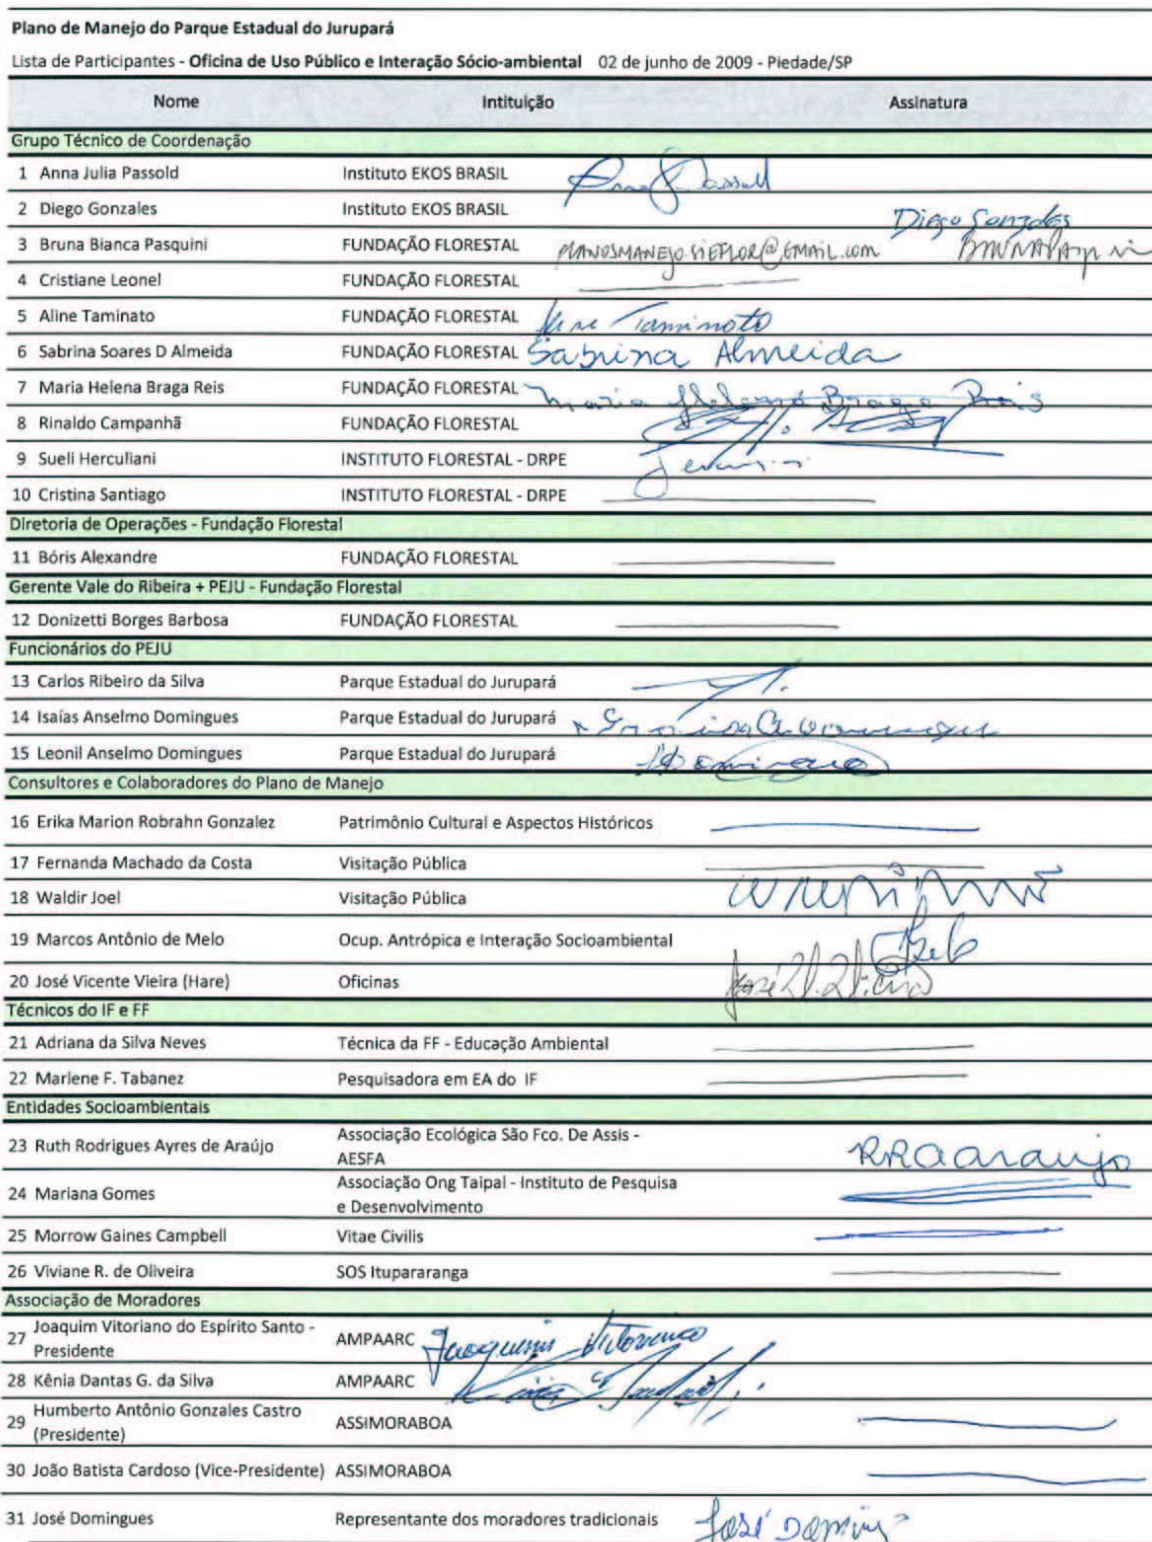 Plano de Manejo do Parque Estadual do Jurupará
Lista de Participantes - Oficina de Uso Público e Interação Sócio-ambiental 02 de junho de 2009 - Piedade/SP
Nome Intituição Assinatura
Grupo Técnico de Coordenação
1 Anna Julia Passold Instituto EKOS BRASIL
2 Diego Gonzales Instituto EKOS BRASIL Diego Gonzales
3 Bruna Bianca Pasquini FUNDAÇÃO FLORESTAL PLANOSMANEJO.SIEFLOR@GMAIL.com
4 Cristiane Leonel FUNDAÇÃO FLORESTAL
5 Aline Taminato FUNDAÇÃO FLORESTAL Aline Taminato
6 Sabrina Soares D Almeida FUNDAÇÃO FLORESTAL Sabrina Almeida
7 Maria Helena Braga Reis FUNDAÇÃO FLORESTAL Maria Helena Braga Reis
8 Rinaldo Campanhã FUNDAÇÃO FLORESTAL
9 Sueli Herculiani INSTITUTO FLORESTAL - DRPE
10 Cristina Santiago INSTITUTO FLORESTAL - DRPE
Diretoria de Operações - Fundação Florestal
11 Bóris Alexandre FUNDAÇÃO FLORESTAL
Gerente Vale do Ribeira + PEJU - Fundação Florestal
12 Donizetti Borges Barbosa FUNDAÇÃO FLORESTAL
Funcionários do PEJU
13 Carlos Ribeiro da Silva Parque Estadual do Jurupará
14 Isaías Anselmo Domingues Parque Estadual do Jurupará
15 Leonil Anselmo Domingues Parque Estadual do Jurupará
Consultores e Colaboradores do Plano de Manejo
16 Erika Marion Robrahn Gonzalez Patrimônio Cultural e Aspectos Históricos
17 Fernanda Machado da Costa Visitação Pública
18 Waldir Joel Visitação Pública
19 Marcos Antônio de Melo Ocup. Antrópica e Interação Socioambiental
20 José Vicente Vieira (Hare) Oficinas José V. Vieira
Técnicos do IF e FF
21 Adriana da Silva Neves Técnica da FF - Educação Ambiental
22 Marlene F. Tabanez Pesquisadora em EA do IF
Entidades Socioambientais
23 Ruth Rodrigues Ayres de Araújo Associação Ecológica São Fco. De Assis -
AESFA RRAaraujo
24 Mariana Gomes Associação Ong Taipal - Instituto de Pesquisa
e Desenvolvimento
25 Morrow Gaines Campbell Vitae Civilis
26 Viviane R. de Oliveira SOS Itupararanga
Associação de Moradores
27 Joaquim Vitoriano do Espírito Santo -
Presidente AMPAARC Joaquim Vitoriano
28 Kênia Dantas G. da Silva AMPAARC
29 Humberto Antônio Gonzales Castro
(Presidente) ASSIMORABOA
30 João Batista Cardoso (Vice-Presidente) ASSIMORABOA
31 José Domingues Representante dos moradores tradicionais José Doming